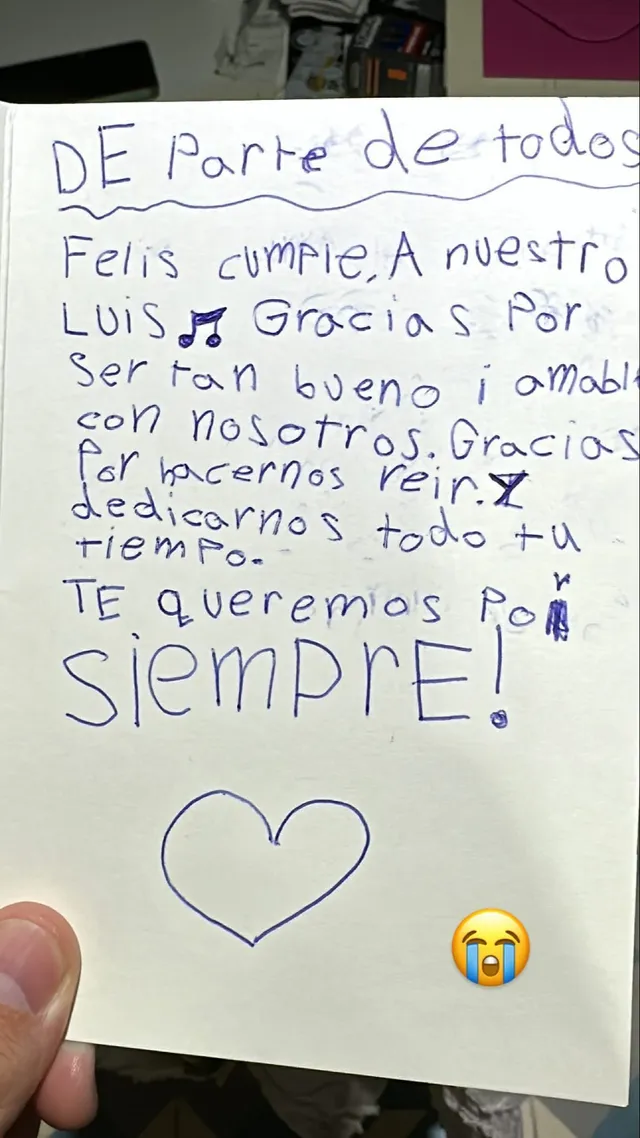 DE Parte de todos
Felis cumple, A nuestro
LUiS Gracias Por
Ser tan bueno i amable
con nosotros. Gracias
Por hacernos reir. Y
dedicarnos todo tu
tiempo.
TE queremos Por
siemprE!